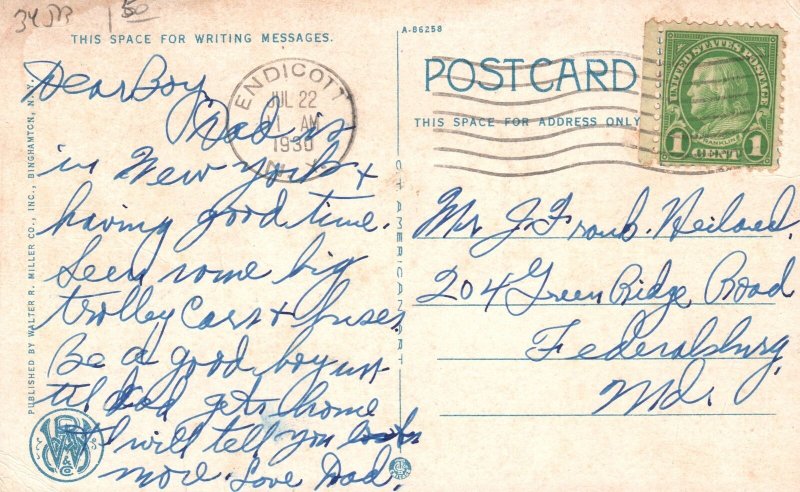 34 1 50
THIS SPACE FOR WRITING MESSAGES.
Dear Boy,
Dad is
in New York +
having good time.
Seen some big
trolley cars & buses
Be a good boy un-
til dad gets home
& I will tell you lots
more. Love Dad.
PUBLISHED BY WALTER R. MILLER CO., INC., BINGHAMTON, N.Y.
C.T. AMERICAN ART
A-86258
POST CARD
THIS SPACE FOR ADDRESS ONLY
ENDICOTT
JUL 22
AM
1930
N.Y.
UNITED STATES POSTAGE
FRANKLIN
1 CENT 1
Mr J. Frank
204 Green Ridge Road
Federalsburg,
Md.